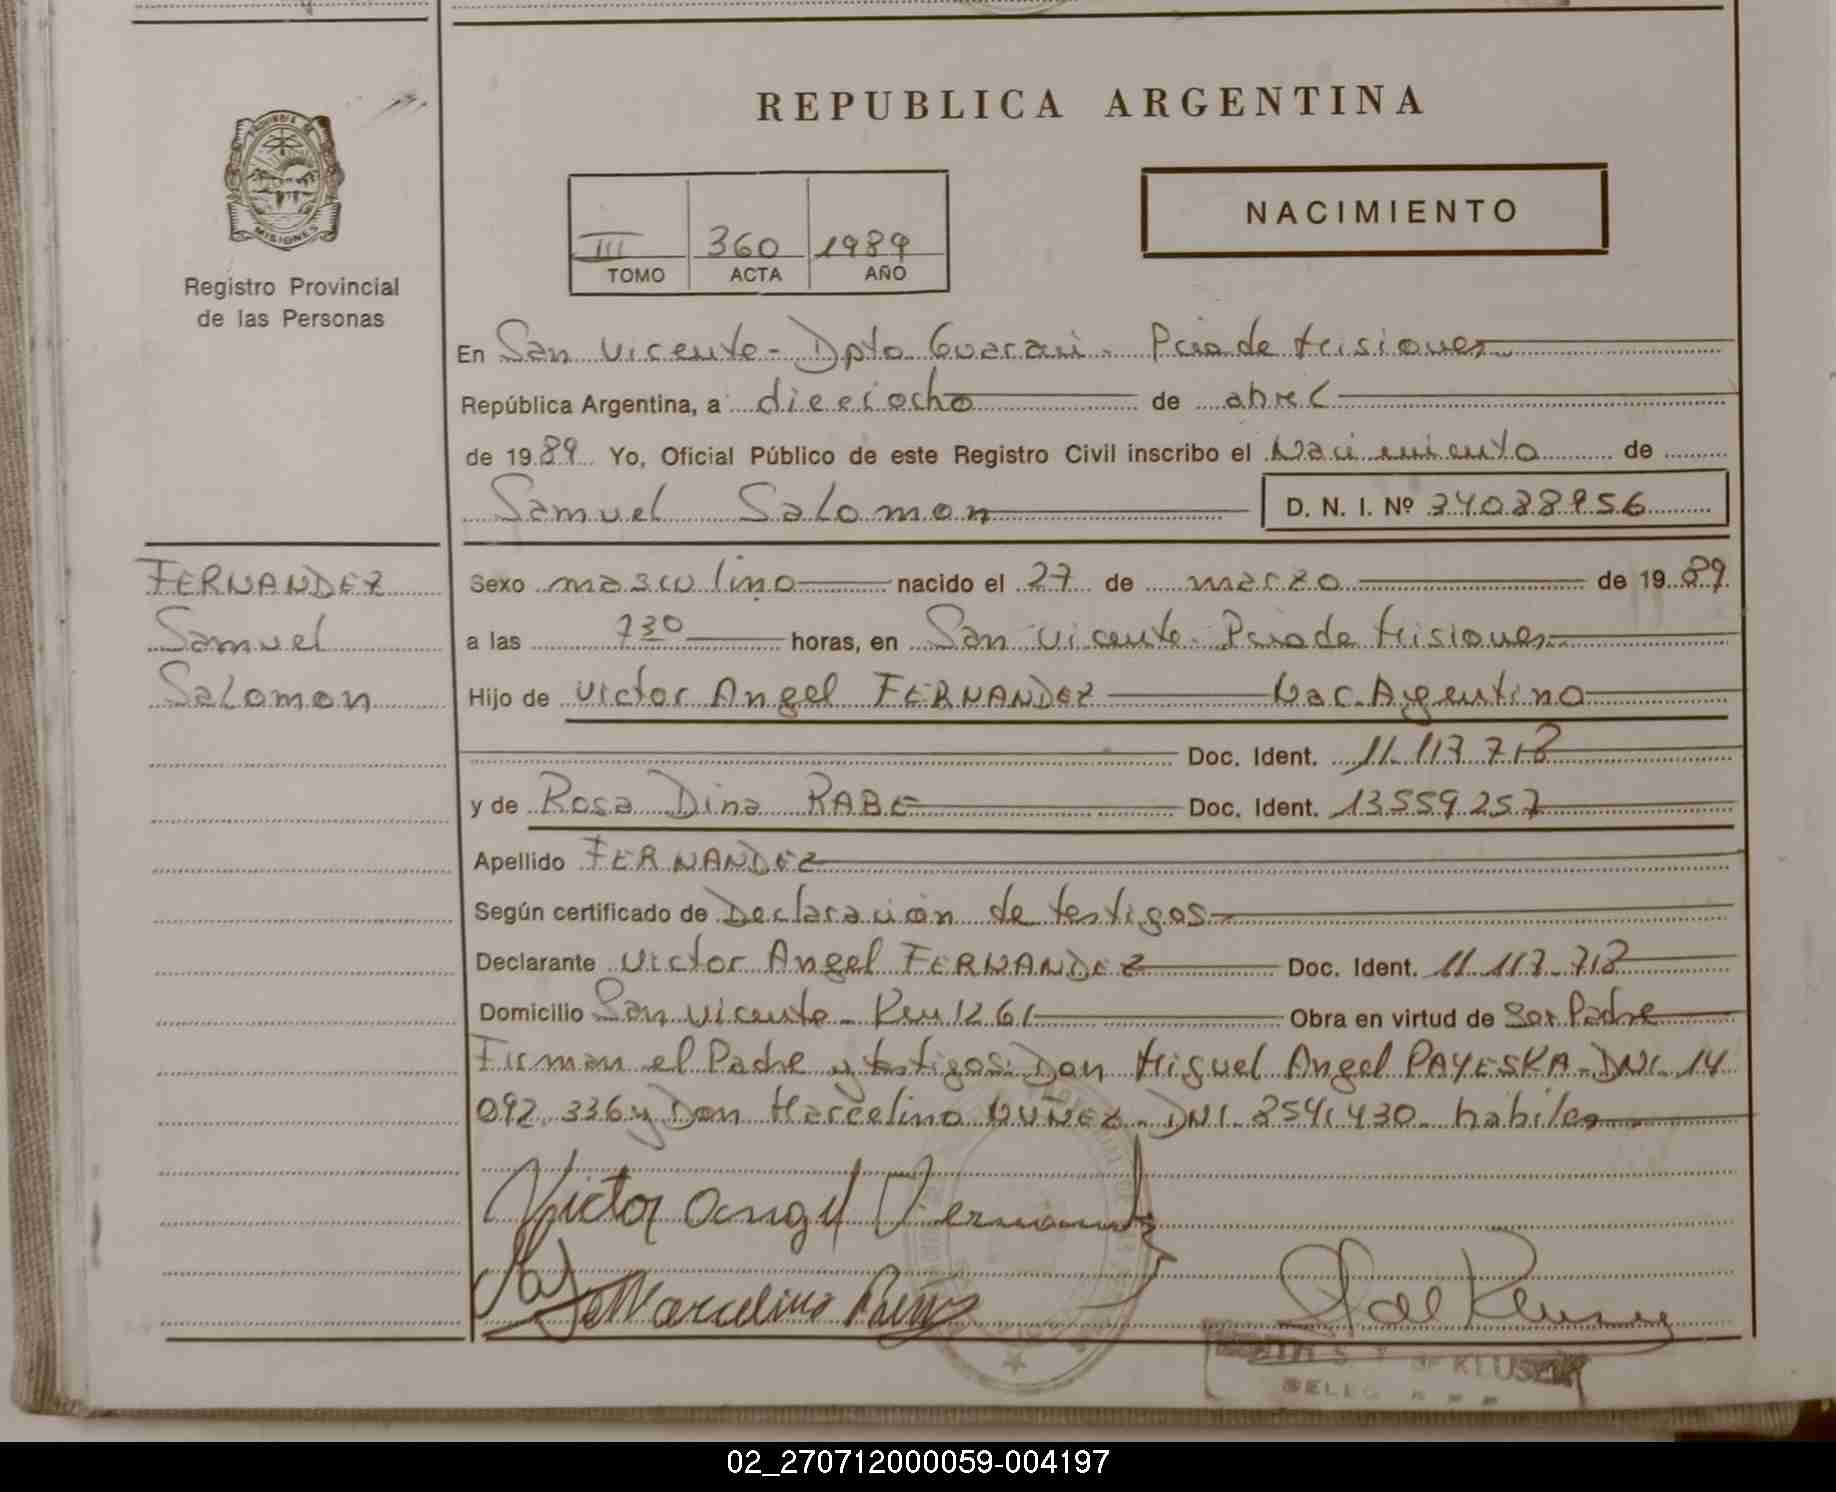 REPUBLICA ARGENTINA
PROVINCIA DE
MISIONES
Registro Provincial
de las Personas
III 360 1989
TOMO ACTA AÑO
NACIMIENTO
En San Vicente - Dpto Guarani - Pcia de Misiones
República Argentina, a dieciocho de abril
de 1989 Yo, Oficial Público de este Registro Civil inscribo el Nacimiento de
Samuel Salomon D. N. I. Nº 34028956
FERNANDEZ
Samuel
Salomon
Sexo masculino nacido el 27 de marzo de 1989
a las 7 30 horas, en San Vicente - Pcia de Misiones
Hijo de Victor Angel FERNANDEZ Nac. Argentino
Doc. Ident. 11.117.718
y de Rosa Dina RABE Doc. Ident. 13.559.257
Apellido FERNANDEZ
Según certificado de Declaración de testigos
Declarante Victor Angel FERNANDEZ Doc. Ident. 11.117.718
Domicilio San Vicente - Km 1261 Obra en virtud de Ser Padre
Firman el Padre y testigos: Don Miguel Angel PAYESKA - DNI. 14
092.336 y Don Marcelino NUÑEZ - DNI. 8541430 - habiles
Victor Angel Fernandez
Marcelino Nuñez
KLUSENER
02_270712000059-004197